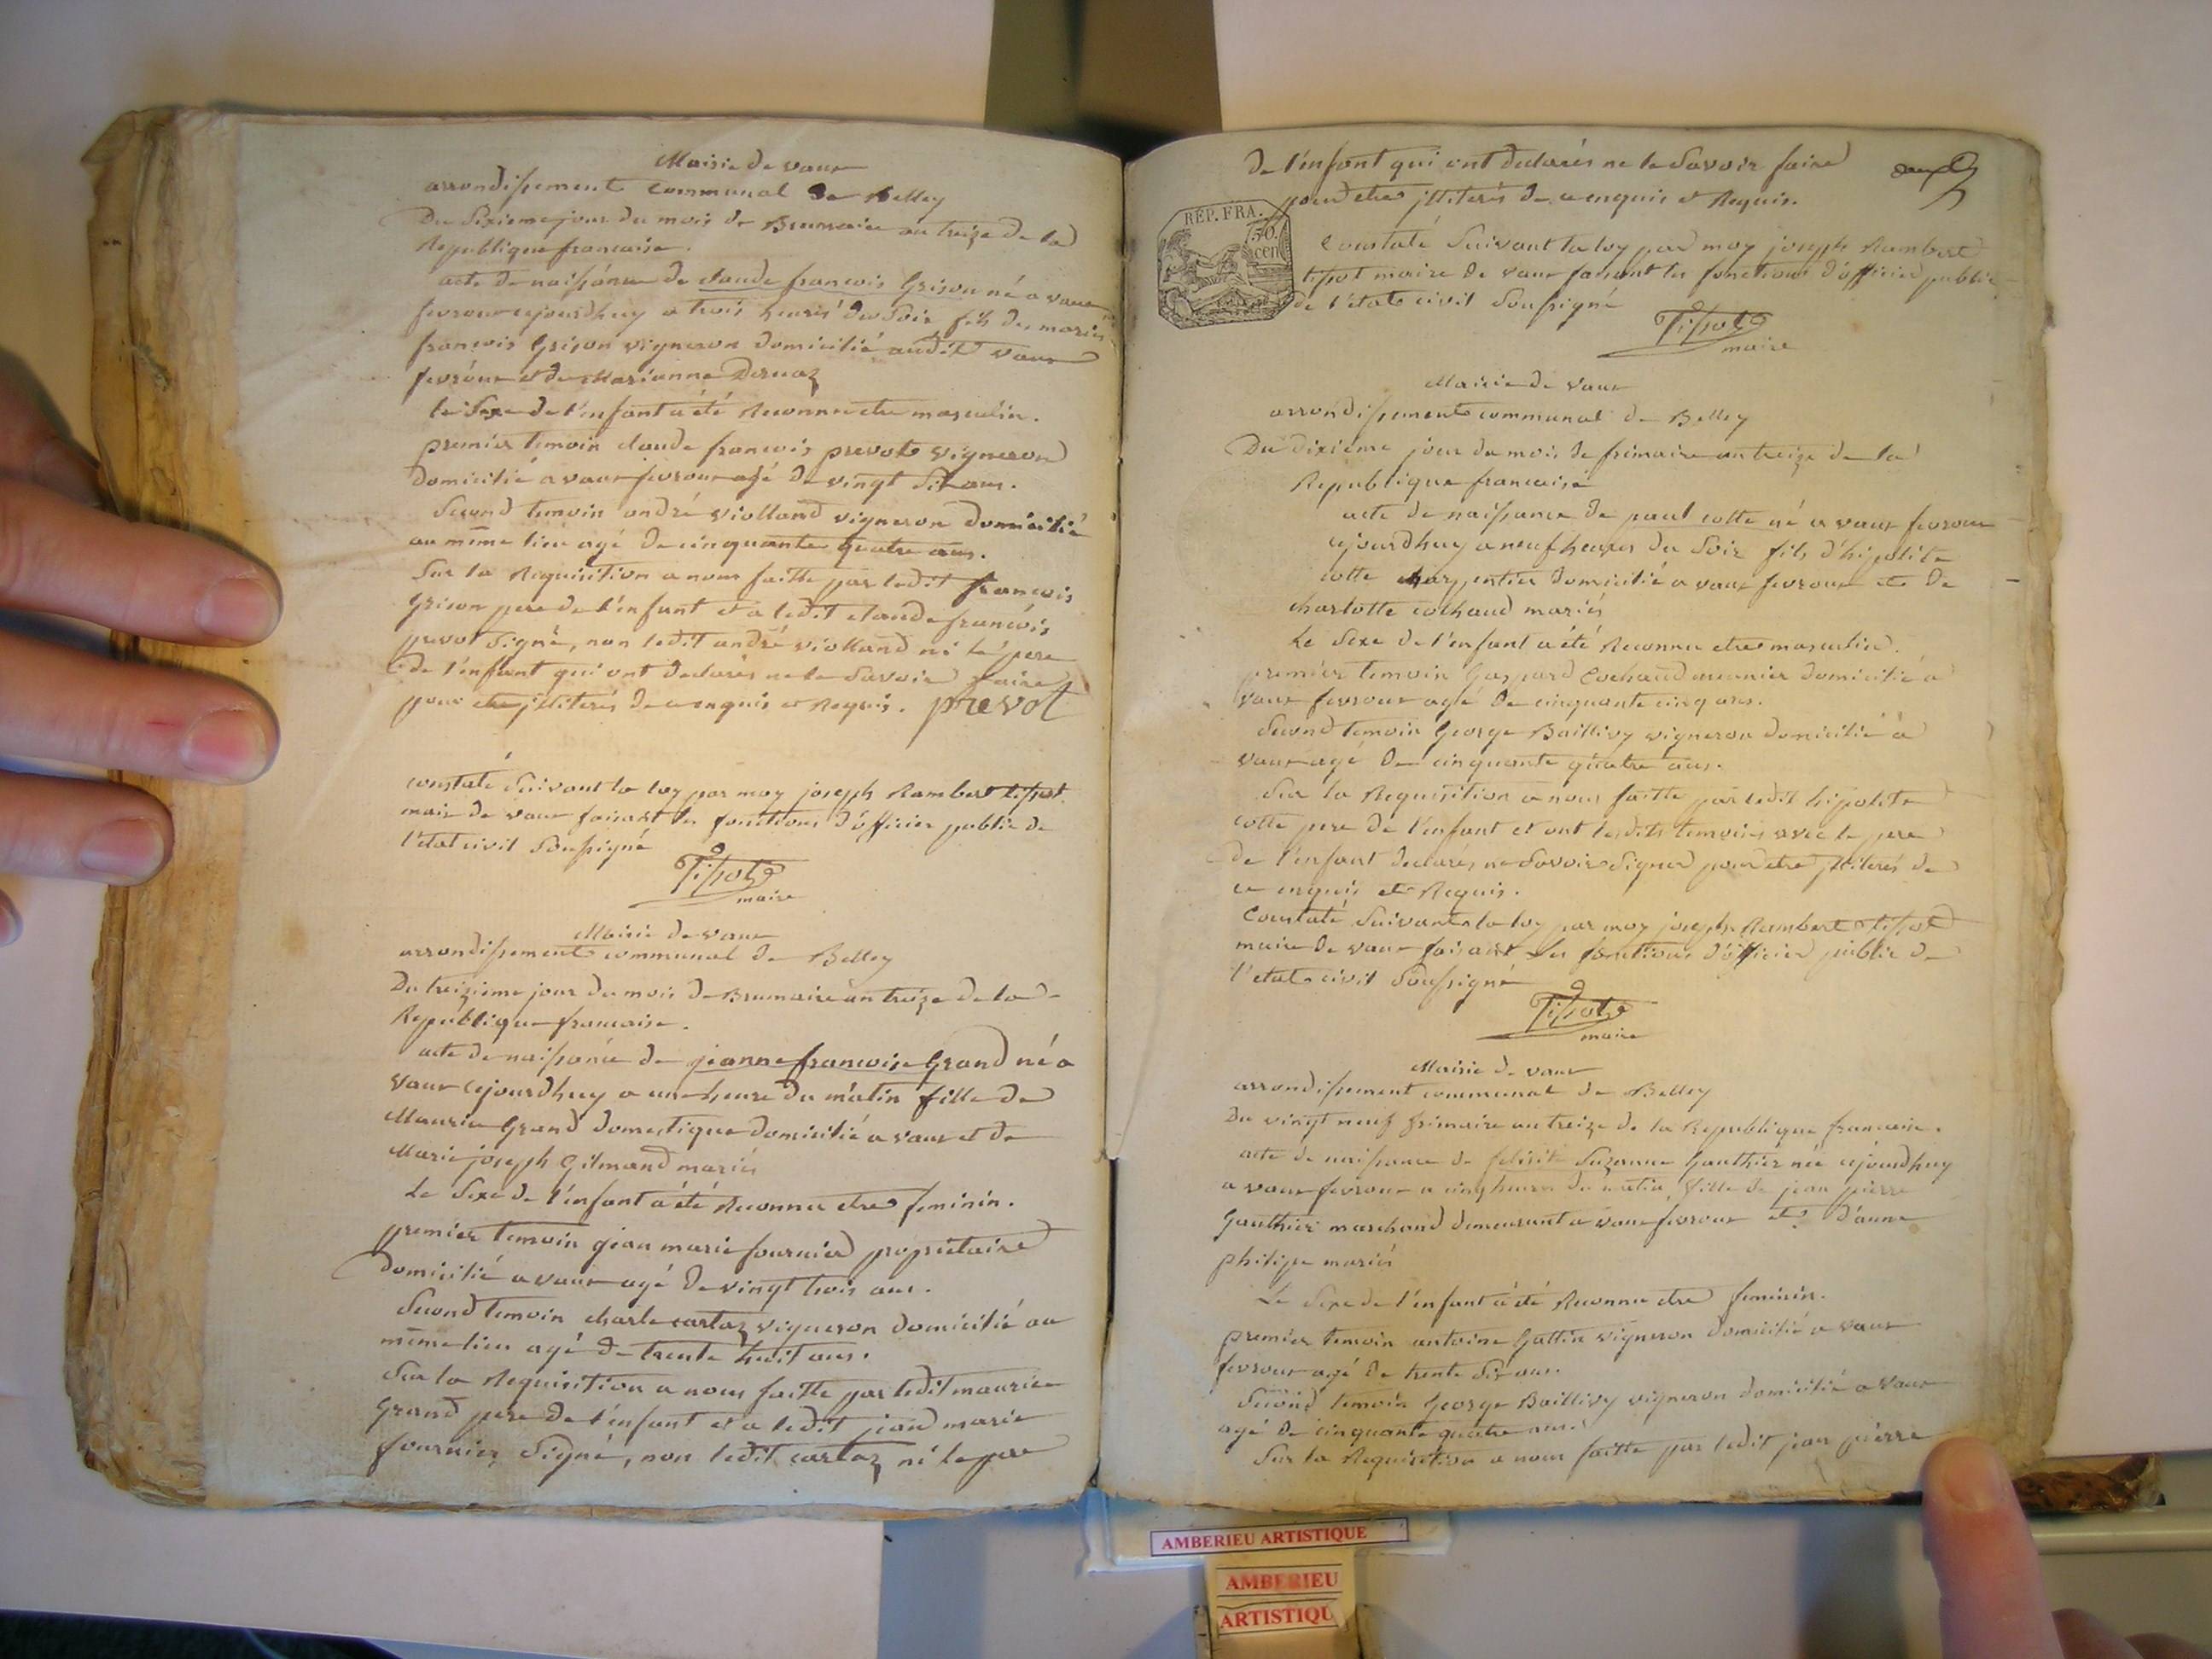 Mairie de vaux
arrondissement communal de Belley
Du sixieme jour du mois de Brumaire an treize de la
Republique francaise.
acte de naissance de claude francois Grison né a vaux
fevroux cejourdhuy a trois heures du soir fils des mariés
francois Grison vigneron domicilié audit vaux
fevroux et de Marianne Dernaz
le sexe de l'enfant a été reconnu etre masculin.
premier temoin claude francois prevot vigneron
domicilié a vaux fevroux agé de vingt six ans.
second temoin andré violland vigneron domicilié
au même lieu agé de cinquante quatre ans.
sur la requisition a nous faitte par ledit francois
Grison pere de l'enfant et a ledit claude francois
prevot signé, non ledit andré violland ni le pere
de l'enfant qui ont declarés ne le savoir faire
pour etre jlliterés de ce enquis et requis. prevot
constaté suivant la loy par moy joseph Rambert tissot
maire de vaux faisant les fonctions d'officier public de
l'etat civil soussigné
Tissot
maire
Mairie de vaux
arrondissement communal de Belley
Du treizieme jour du mois de Brumaire an treize de la
Republique francaise.
acte de naissance de jeanne francoise Grand né a
vaux cejourdhuy a une heure du matin fille de
Maurice Grand domestique domicilié a vaux et de
Marie joseph Gilmand mariés
Le sexe de l'enfant a été reconnu etre feminin.
premier temoin jean marie fournier propriétaire
domicilié a vaux agé de vingt trois ans.
second temoin charle cartaz vigneron domicilié au
même lieu agé de trente huit ans.
sur la requisition a nous faitte par ledit maurice
Grand pere de l'enfant et a ledit jean marie
fournier signé, non ledit cartaz ni le pere
de l'enfant qui ont declarés ne le savoir faire
pour etre jlliterés de ce enquis et requis.
RÉP. FRA.
50.
cen
constaté suivant la loy par moy joseph Rambert
tissot maire de vaux faisant les fonctions d'officier public
de l'etat civil soussigné
Tissot
maire
Mairie de vaux
arrondissement communal de Belley
Du dixième jour du mois de frimaire an treize de la
Republique francaise
acte de naissance de paul cotte né a vaux fevroux
cejourdhuy a neuf heures du soir fils d'hipolite
cotte charpentier domicilié a vaux fevroux et de
charlotte cochaud mariés
Le sexe de l'enfant a été reconnu etre masculin.
premier temoin Gaspard Cochaud meunier domicilié a
vaux fevroux agé de cinquante cinq ans.
second temoin George Baillivy vigneron domicilié à
vaux agé de cinquante quatre ans.
sur la requisition a nous faitte par ledit hipolite
cotte pere de l'enfant et ont lesdits temoins avec le pere
de l'enfant declarés ne savoir signer pour etre jlliterés de
ce enquis et requis.
Constaté suivant la loy par moy joseph Rambert tissot
maire de vaux faisant les fonctions d'officier public de
l'etat civil soussigné
Tissot
maire
Mairie de vaux
arrondissement communal de Belley
Du vingt neuf frimaire an treize de la Republique francaise.
acte de naissance de felisite suzanne Gauthier née cejourdhuy
a vaux fevroux a cinq heures du matin, fille de jean pierre
Gauthier marchand demeurant a vaux fevroux et d'anne
philipe mariés
Le sexe de l'enfant a été reconnu etre feminin.
premier temoin antoine Gallin vigneron domicilié a vaux
fevroux agé de trente six ans.
second temoin George Baillivy vigneron domicilié a vaux
agé de cinquante quatre ans.
sur la requisition a nous faitte par ledit jean pierre
AMBERIEU ARTISTIQUE
AMBERIEU
ARTISTIQU